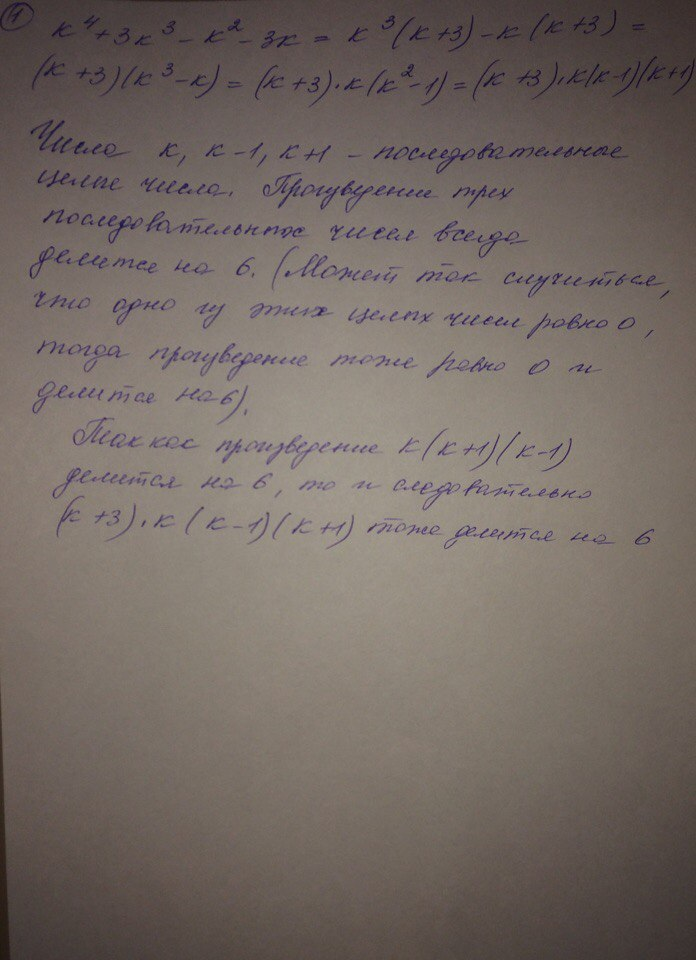 1
к⁴+3к³-к²-3к = к³(к+3)-к(к+3) =
(к+3)(к³-к) = (к+3)·к(к²-1) = (к+3)·к(к-1)(к+1)
Числа к, к-1, к+1 - последовательные
целые числа. Произведение трех
последовательных чисел всегда
делится на 6. (Может так случиться,
что одно из этих целых чисел равно 0,
тогда произведение тоже равно 0 и
делится на 6).
Так как произведение к(к+1)(к-1)
делится на 6, то и следовательно
(к+3)·к(к-1)(к+1) тоже делится на 6